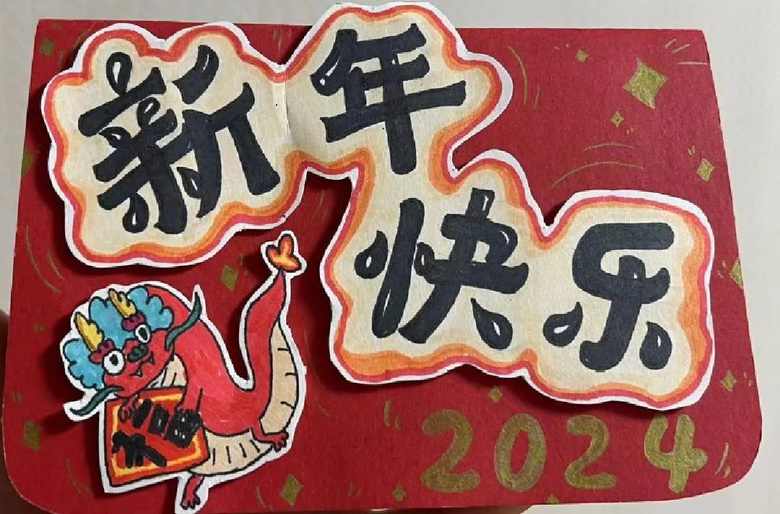 新年
快乐
福
2024